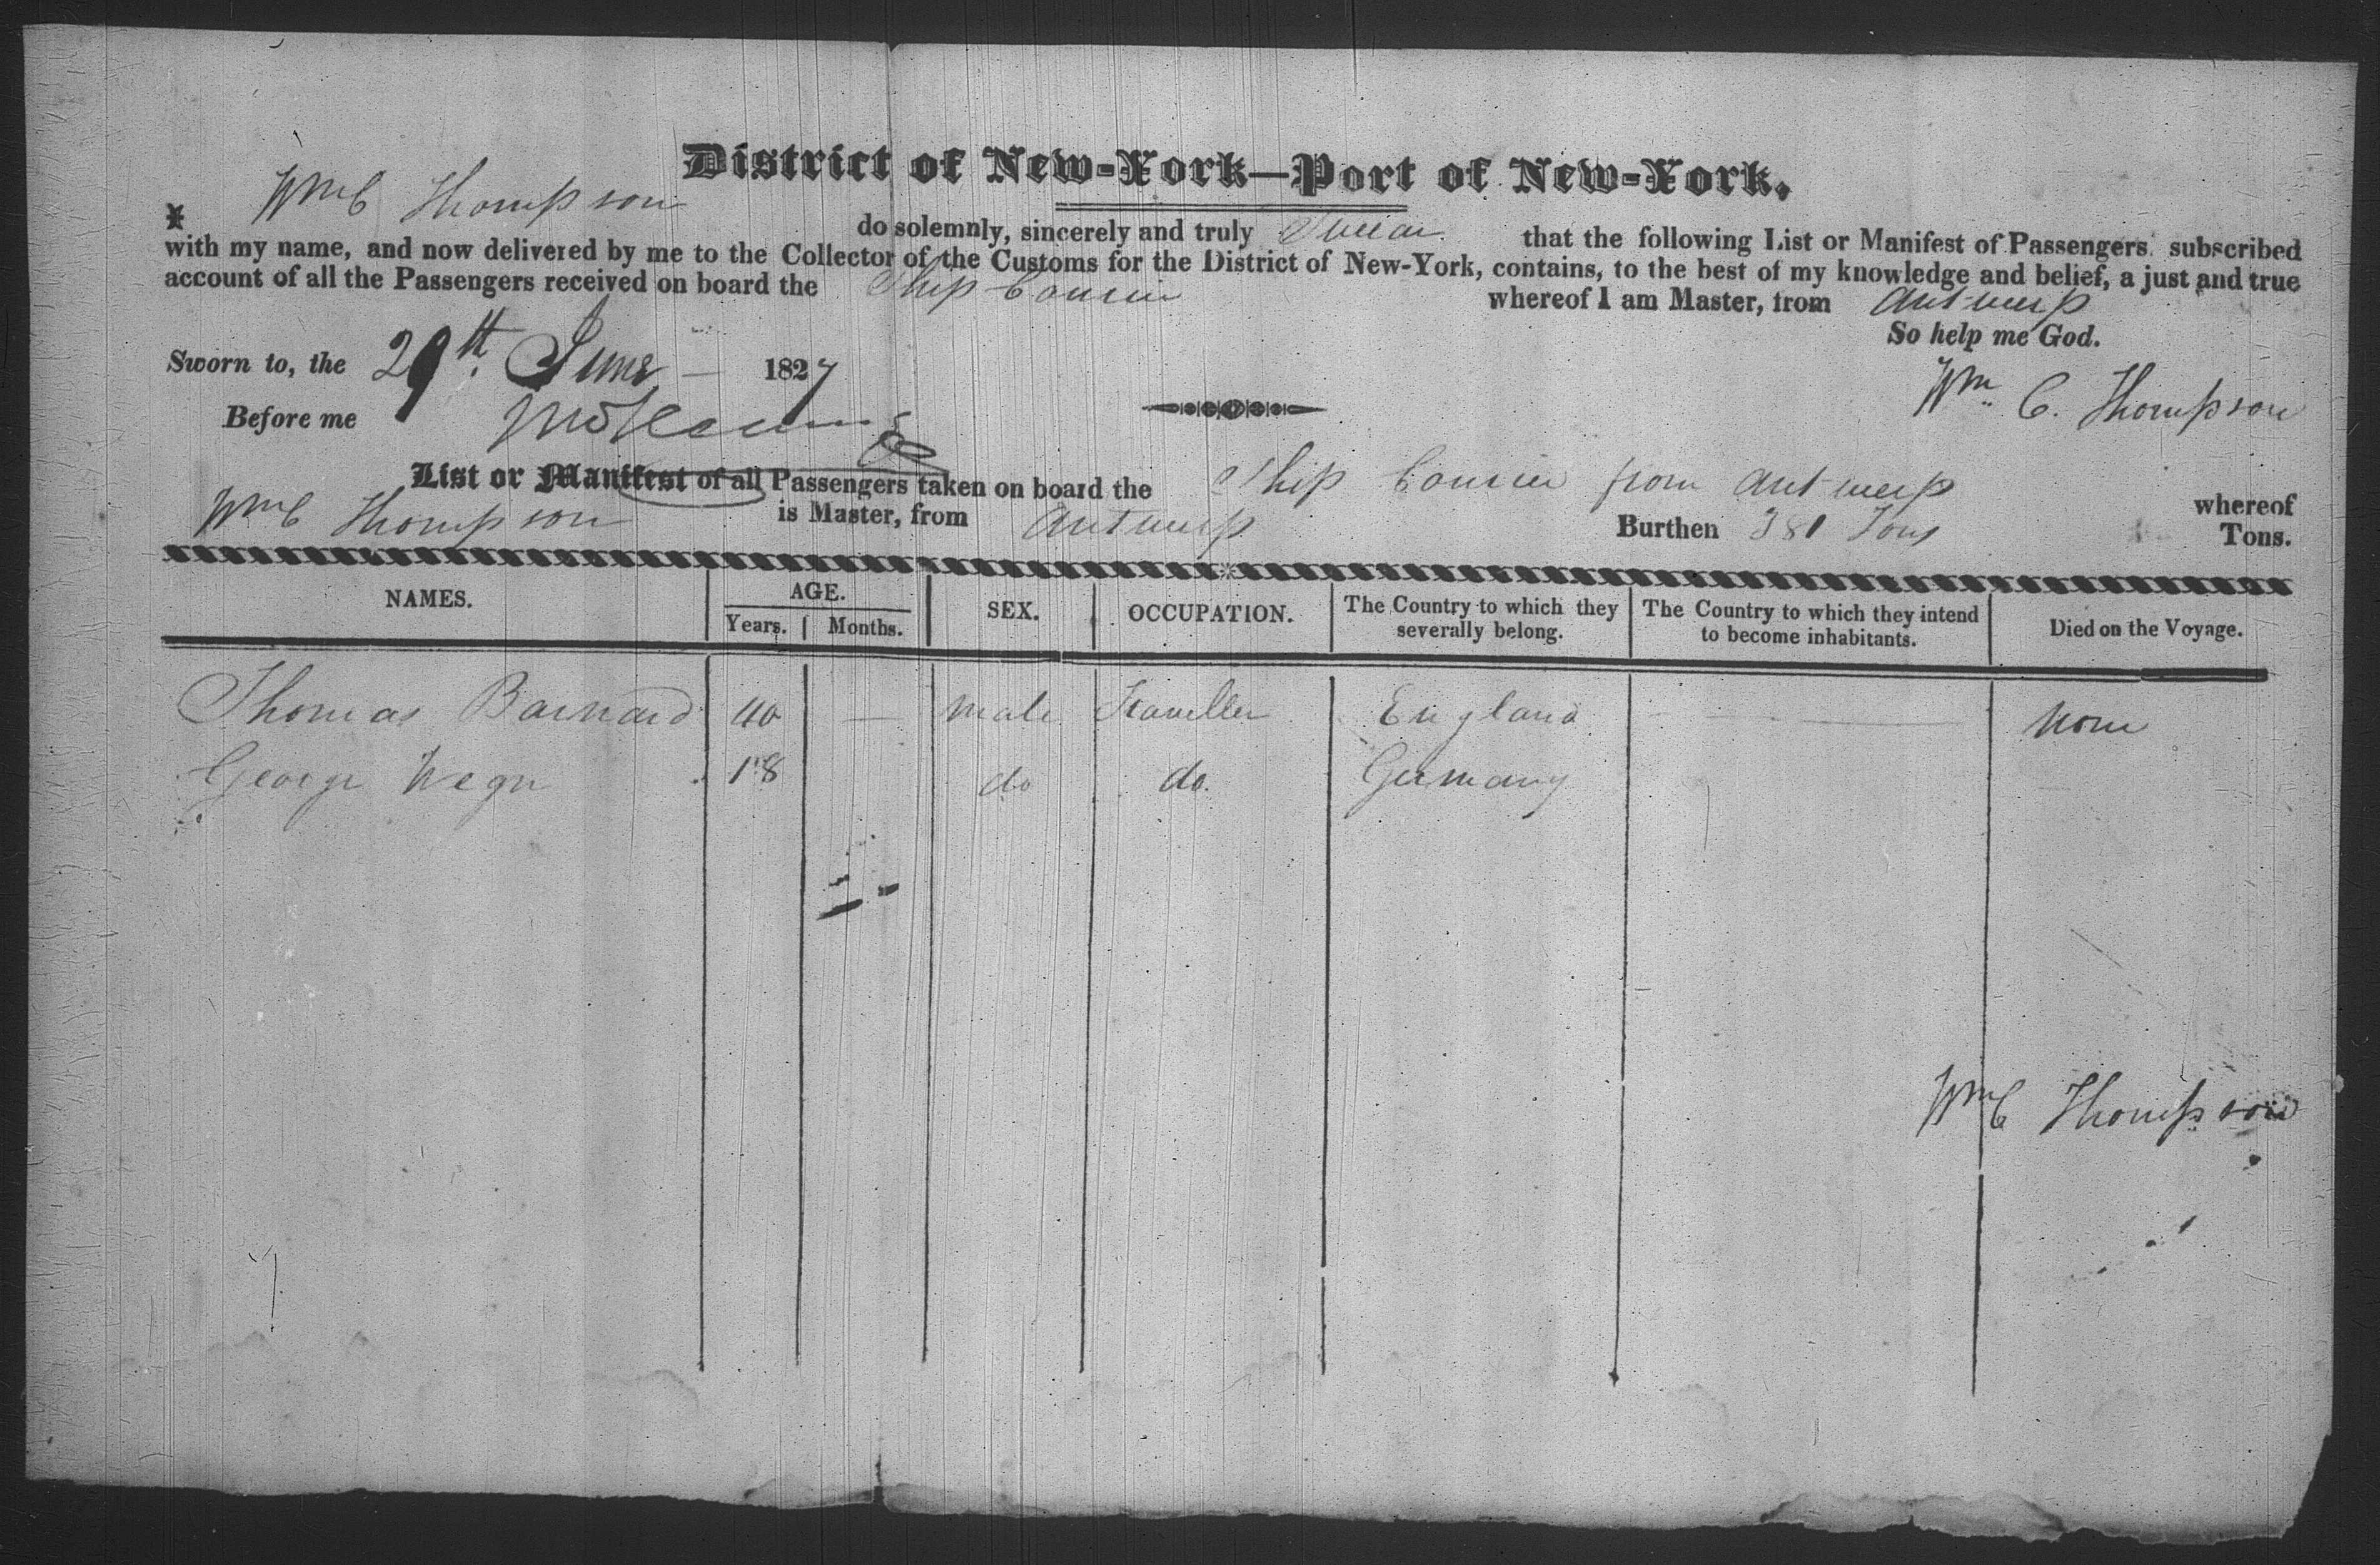 District of New-York—Port of New-York,
I Wm C Thompson do solemnly, sincerely and truly Swear that the following List or Manifest of Passengers subscribed
with my name, and now delivered by me to the Collector of the Customs for the District of New-York, contains, to the best of my knowledge and belief, a just and true
account of all the Passengers received on board the Ship Courier whereof I am Master, from Antwerp
So help me God.
Sworn to, the 29th June — 1827
Wm C. Thompson
Before me
List or Manifest of all Passengers taken on board the Ship Courier from Antwerp whereof
Wm C Thompson is Master, from Antwerp Burthen 381 Tons Tons.
NAMES. AGE. SEX. OCCUPATION. The Country to which they severally belong. The Country to which they intend to become inhabitants. Died on the Voyage.
Years. Months.
Thomas Barnard 40 — male Traveller England — None
George 18 do do. Germany
Wm C Thompson